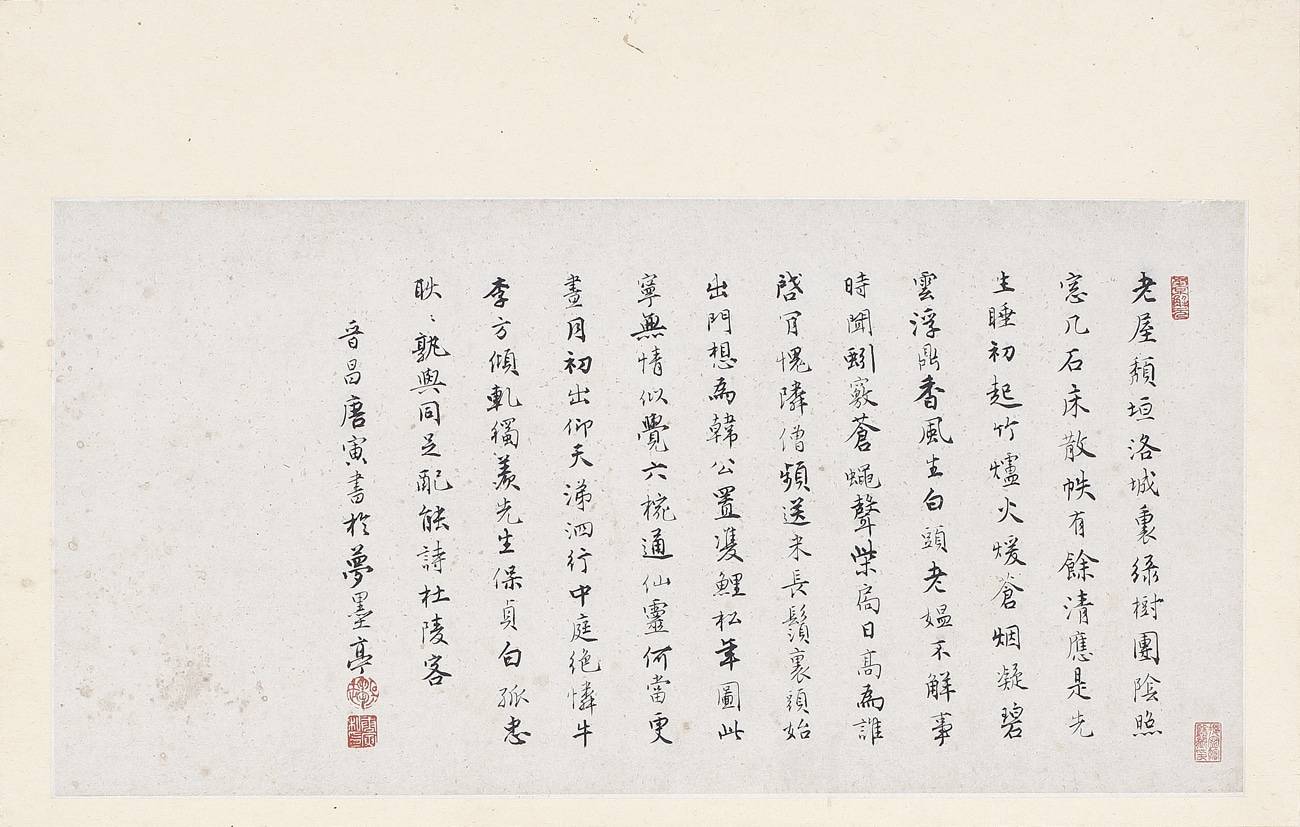 老屋頹垣洛城裏綠樹團陰照
窓几石床散帙有餘清應是先
生睡初起竹爐火煖蒼烟凝碧
雲浮鼎香風生白頭老媼不解事
時聞蚓竅蒼蠅聲柴扃日高為誰
啓育愧隣僧頻送米長鬚裹頭始
出門想為韓公置雙鯉松年圖此
寧無情似覺六椀通仙靈何當更
晝月初出仰天涕泗行中庭絕憐牛
李方傾軋獨羨先生保貞白孤忠
耿〻孰與同足配能詩杜陵客
晉昌唐寅書於夢墨亭